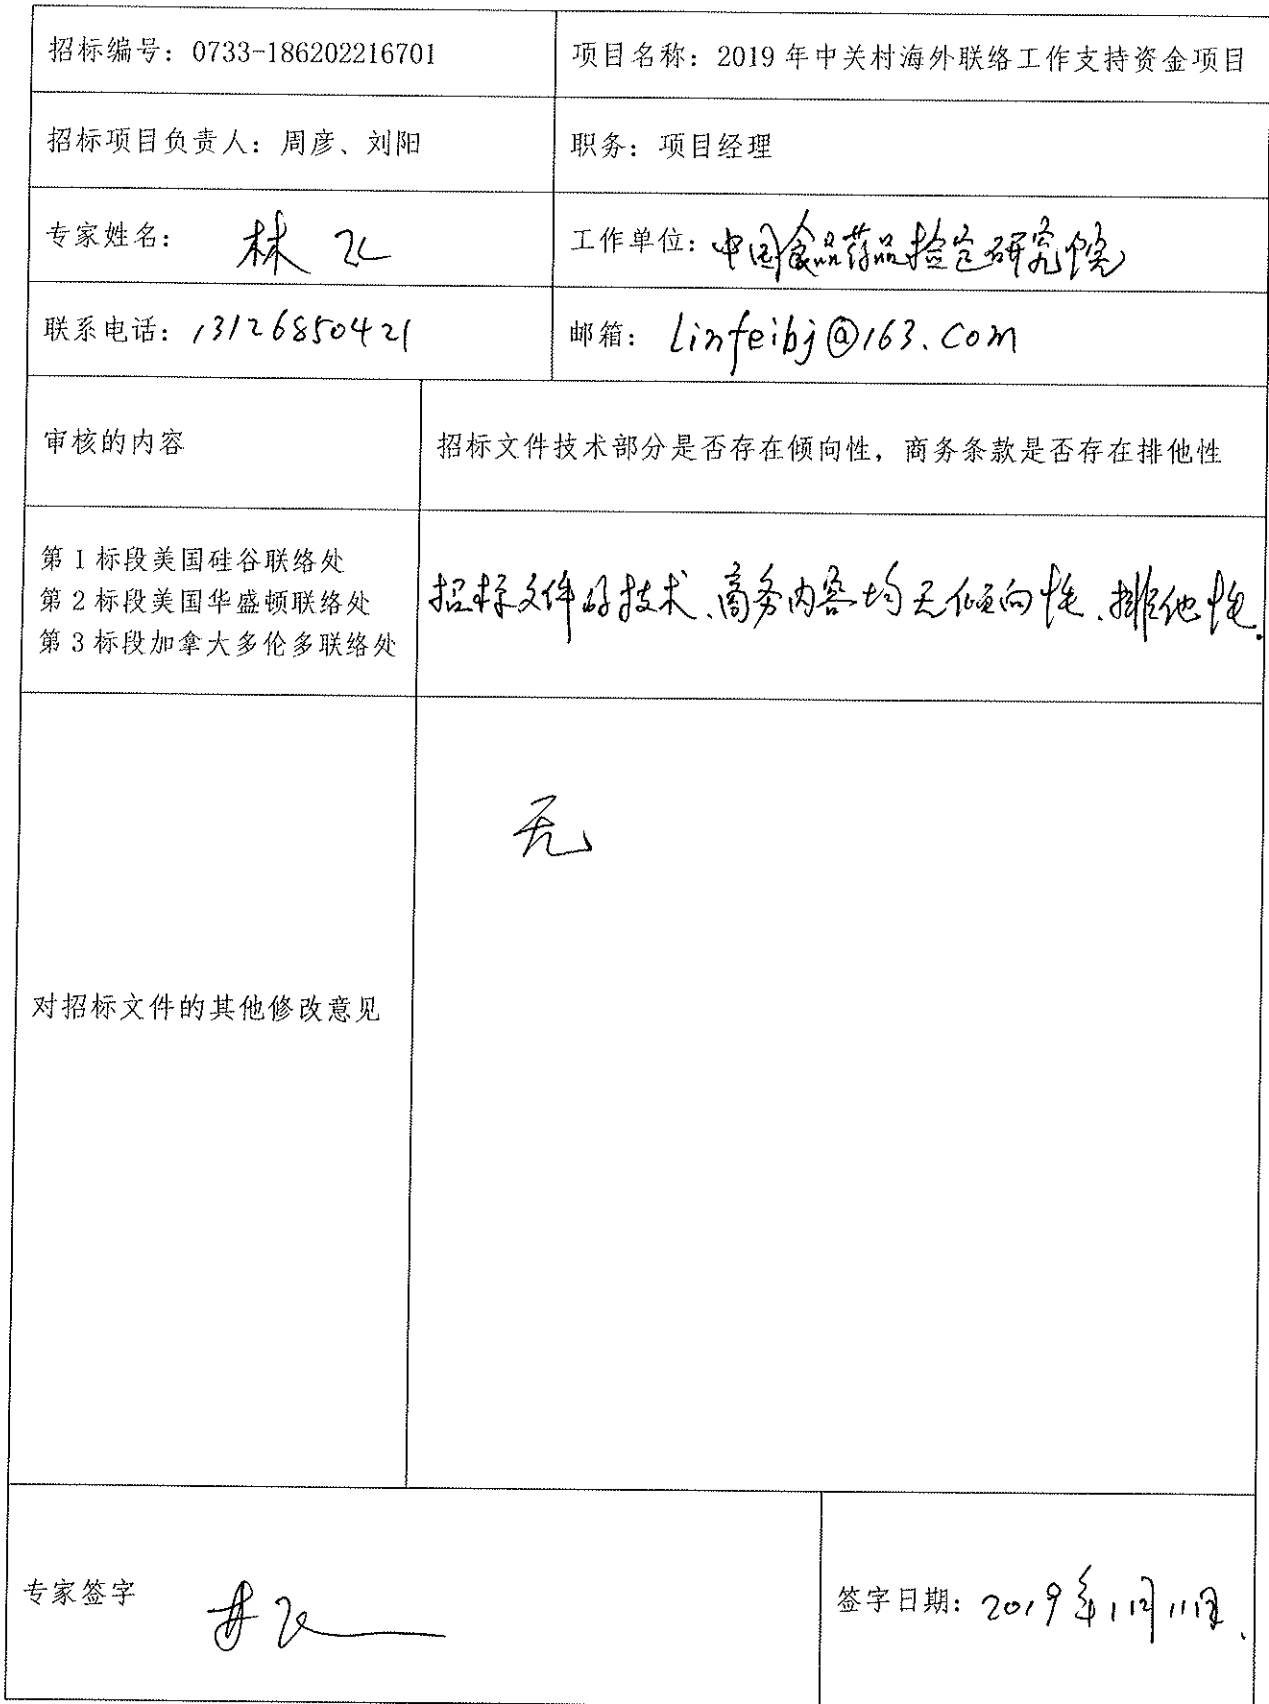 招标编号：0733-186202216701
项目名称：2019年中关村海外联络工作支持资金项目
招标项目负责人：周彦、刘阳
职务：项目经理
专家姓名：林飞
工作单位：中国食品药品检定研究院
联系电话：13126850421
邮箱：linfeibj@163.com
审核的内容
招标文件技术部分是否存在倾向性，商务条款是否存在排他性
第1标段美国硅谷联络处
第2标段美国华盛顿联络处
第3标段加拿大多伦多联络处
招标文件的技术、商务内容均无倾向性、排他性.
对招标文件的其他修改意见
无
专家签字 林飞
签字日期：2019年1月11日.